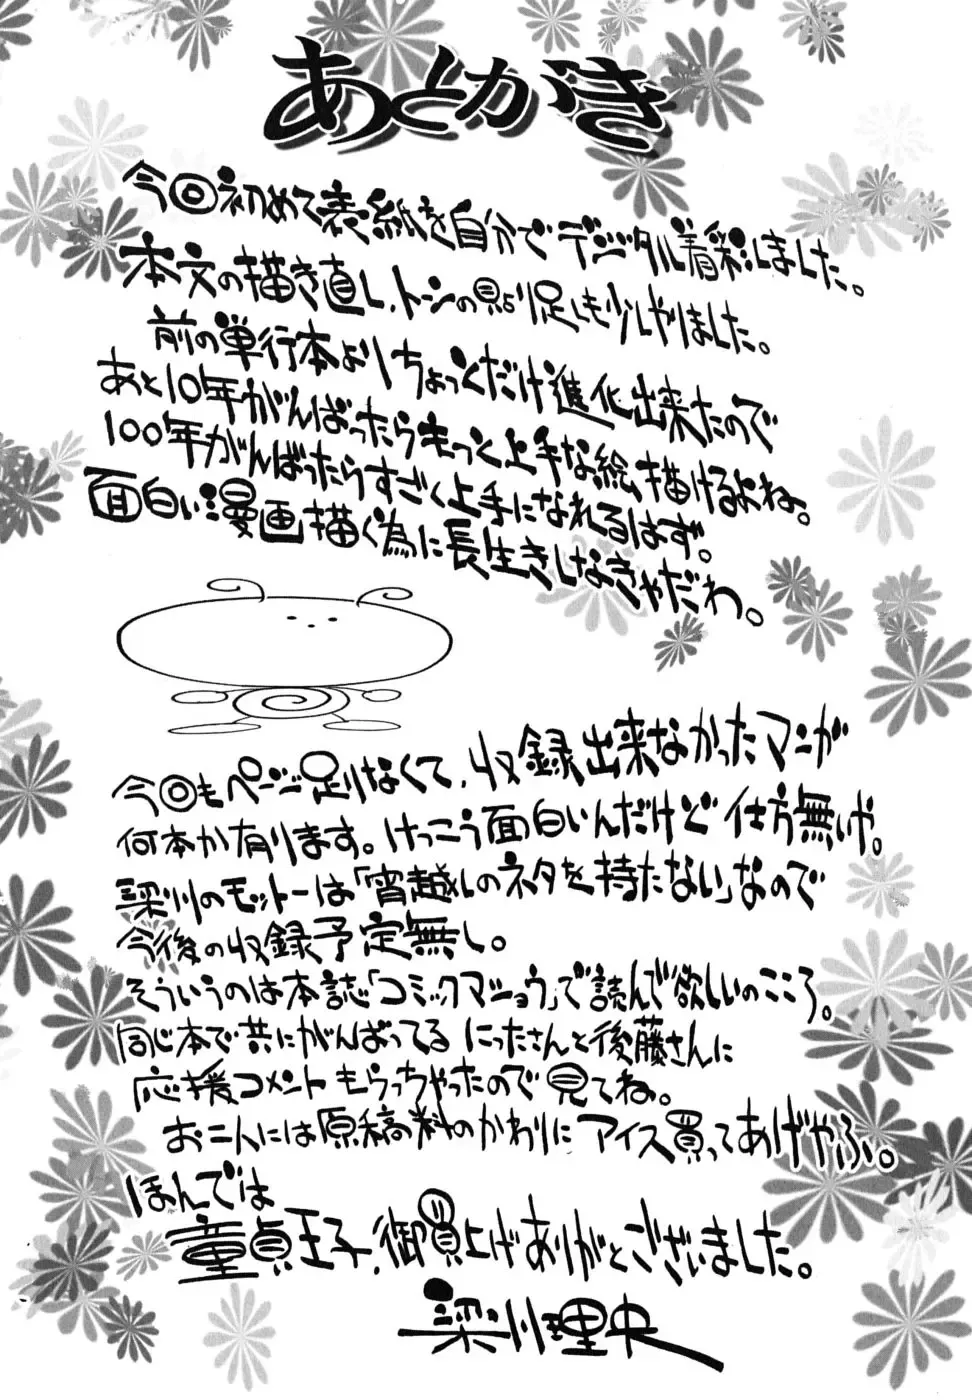 あとがき
今回初めて表紙を自分でデジタル着彩しました。
本文の描き直し、トーンの貼り足しも少しやりました。
前の単行本よりちょっとだけ進化出来たので
あと10年がんばったらもっと上手な絵描けるよね。
100年がんばったらすごく上手になれるはず。
面白い漫画描く為に長生きしなきゃだわ。
今回もページ足りなくて、収録出来なかったマンガ
何本か有ります。けっこう面白いんだけど仕方無いや。
梁川のモットーは「宵越しのネタを持たない」なので
今後の収録予定無し。
そういうのは本誌「コミックマショウ」で読んで欲しいのこころ。
同じ本で共にがんばってるにったさんと後藤さんに
応援コメントもらっちゃったので見てね。
お二人には原稿料のかわりにアイス買ってあげやふ。
ほんでは
童貞王子、御買上げありがとうございました。
梁川理央